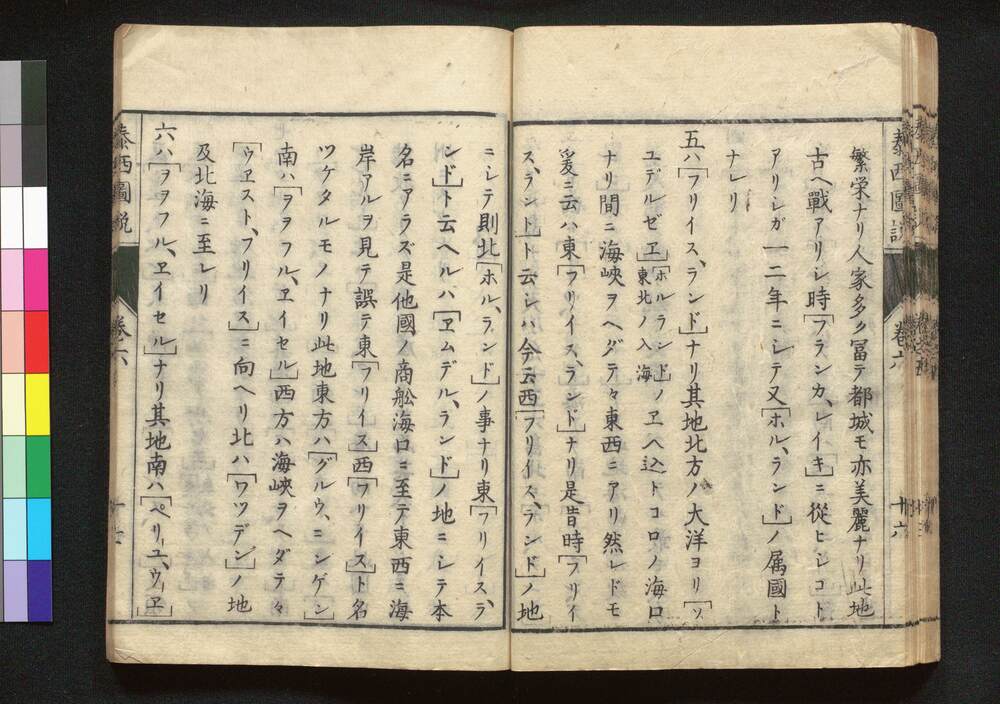 泰西圖説
卷六
十六
繁栄ナリ人家多ク冨テ都城モ亦美麗ナリ此地
古ヘ戰アリシ時「フランカ、レイキ」ニ從ヒシコト
アリシガ一二年ニシテ又「ホル、ランド」ノ属國ト
ナレリ
五ハ「フリイス、ランド」ナリ其地北方ノ大洋ヨリ「ソ
ユデルゼヱ」「ホルランド」ノヱヘ込トコロノ海口
東北ノ入海
ナリ間ニ海峽ヲヘダテ々東西ニアリ然レドモ
爰ニ云ハ東「フリイス、ランド」ナリ是昔時「フリイ
ス、ラント」ト云シハ今云西「フリイス、ランド」ノ地
ニシテ則北「ホル、ランド」ノ事ナリ東「フリイス、ラ
ンド」ト云ヘルハ「ヱムデル、ランド」ノ地ニシテ本
名ニアラズ是他國ノ商舩海口ニ至テ東西ニ海
岸アルヲ見テ誤テ東「フリイス」西「フリイス」ト名
ツケタルモノナリ此地東方ハ「グルウ、ニンゲン」
南ハ「ヲヲフル、ヱイセル」西方ハ海峽ヲヘダテ々
「ウヱスト、フリイス」ニ向ヘリ北ハ「ワツデン」ノ地
及北海ニ至レリ
六ハ「ヲヲフル、ヱイセル」ナリ其地南ハ「ペリユ、ウ、ヱ」
泰西圖説
卷六